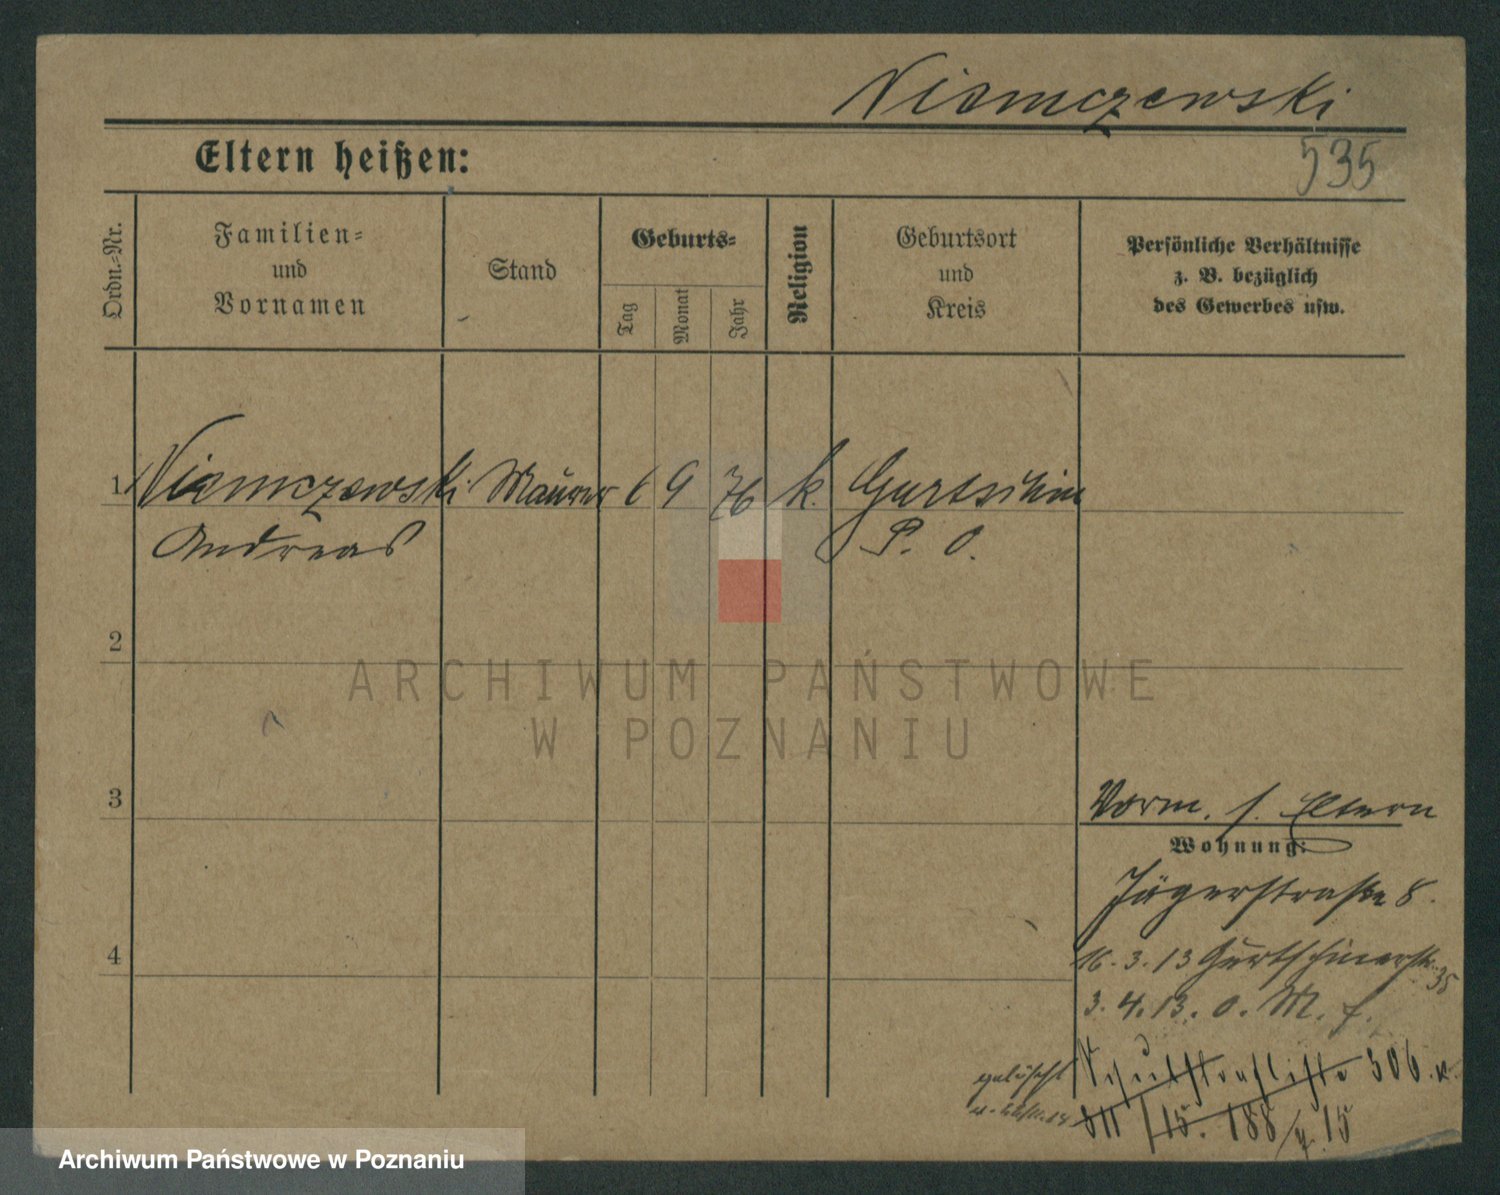 Niemczewski
Eltern heißen:
535
Ordn.-Nr.
Familien-
und
Vornamen
Stand
Geburts-
Tag
Monat
Jahr
Religion
Geburtsort
und
Kreis
Persönliche Verhältnisse
z. B. bezüglich
des Gewerbes usw.
1 Niemczewski Maurer 6 9 76 k. Gurtschin
Andreas P. O.
2
3
4
Vorm. s. Eltern
Wohnung:
Jägerstraße 8.
16.3.13 Gurtschinerstr. 35
3.4.13. o. M. f.
gelöscht
306
811/15. 188/15
ARCHIWUM PAŃSTWOWE
W POZNANIU
Archiwum Państwowe w Poznaniu